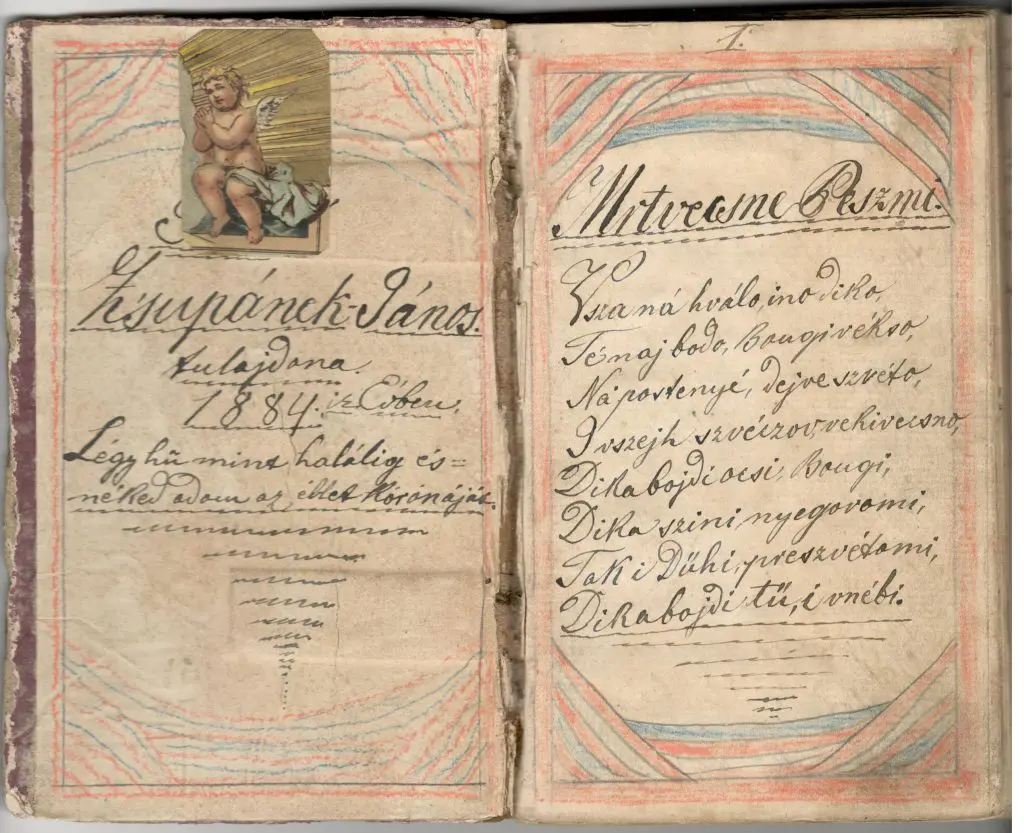 Zsupánek János.
tulajdona.
1884. ik Évben.
Légy hű mint halálig és=
néked adom az éltet Kórónáját.
1.
Mrtvecsne Peszmi.
Vsza ná hválo, ino diko,
Té naj bodo, Bougi vékso,
Na postenyé, dejve szvéto,
I vszejh szvéczov, vekivecsno,
Dika bojdi ocsi, Bougi,
Dika szini, nyegovomi,
Tak i Dühi, preszvétomi,
Dika bojdi tü, i vnébi.